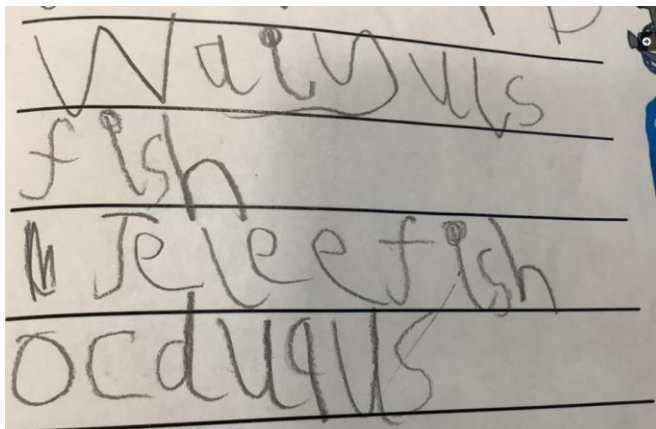 Waiyuls
fish
Jeleefish
ocduqus